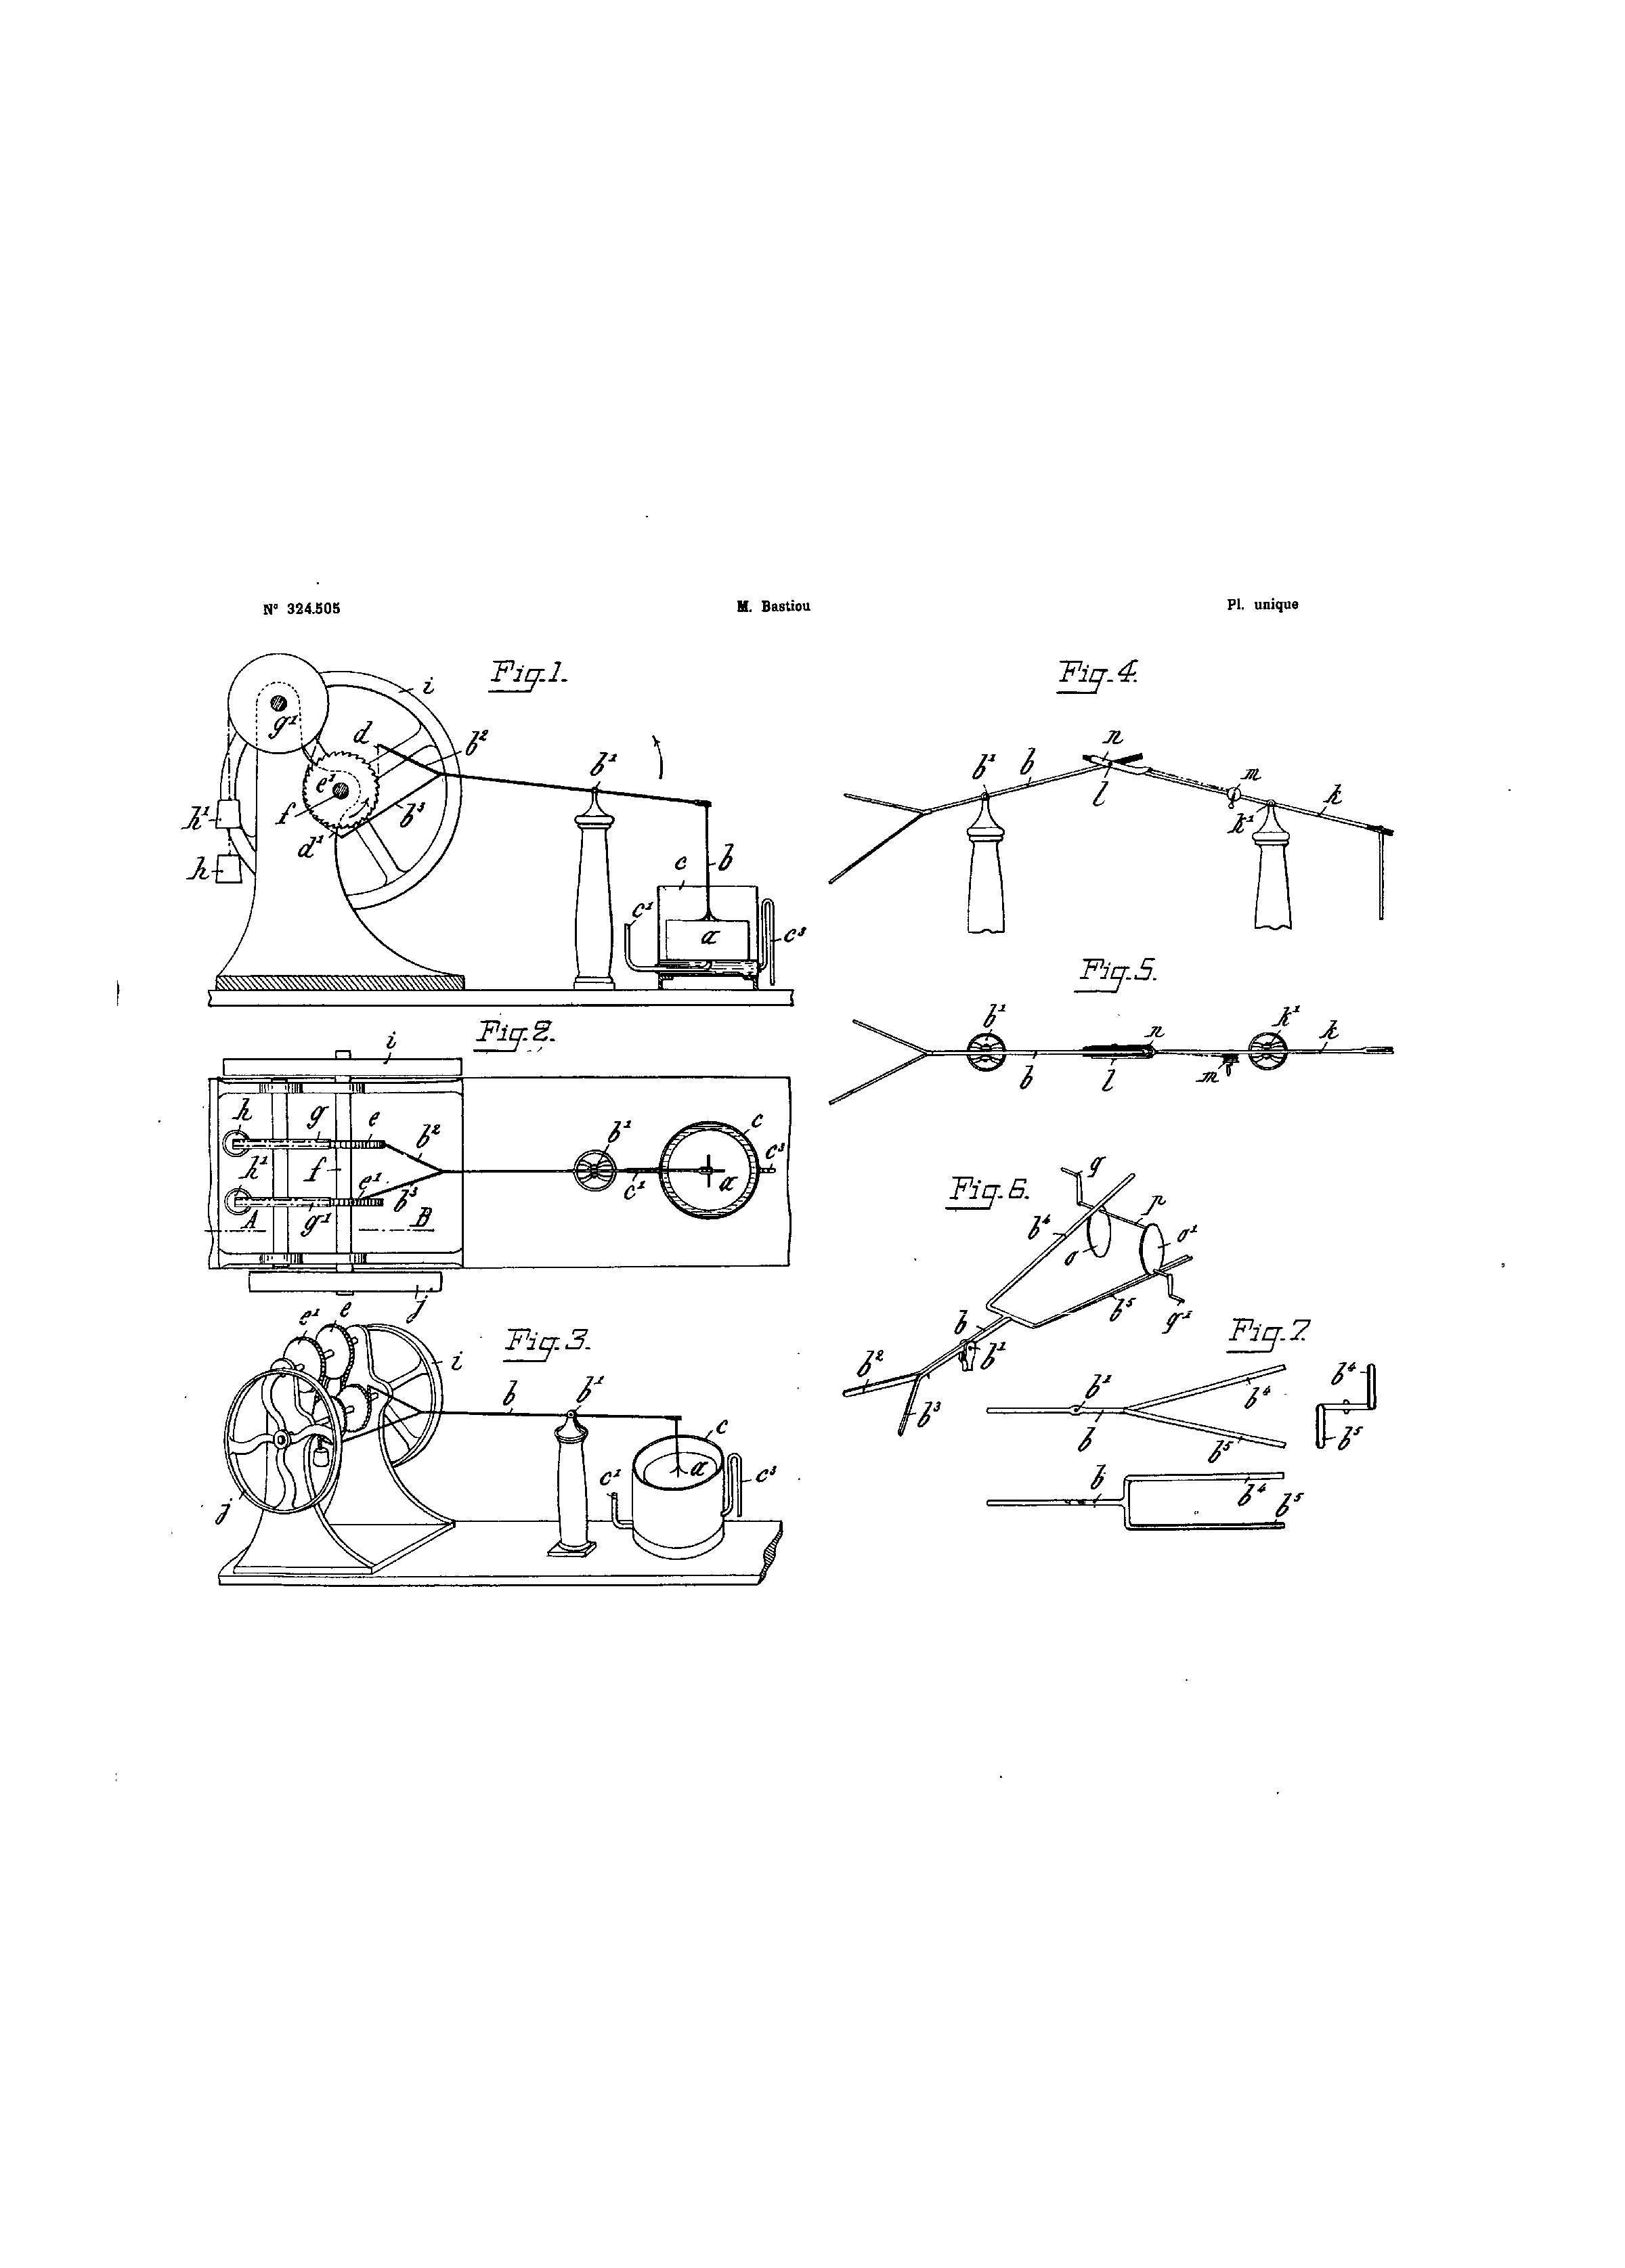 N° 324.505
M. Bastiou
Pl. unique
Fig.1.
i
g¹
d
b²
b¹
e¹
f
b³
h¹
d¹
h
c
b
c¹
a
c³
Fig.2.
i
h
g
e
b²
b¹
c
c³
h¹
f
e¹
b³
c¹
a
A
g¹
B
j
Fig.3.
e¹
e
i
b
b¹
c
a
c¹
c³
j
Fig.4.
n
b¹
b
l
m
k
k¹
Fig.5.
b¹
n
k¹
k
b
l
m
Fig.6.
g
p
b⁴
o
o¹
b⁵
g¹
b
b¹
b²
b³
Fig.7.
b¹
b⁴
b⁴
b
b⁵
b⁵
b
b⁴
b⁵